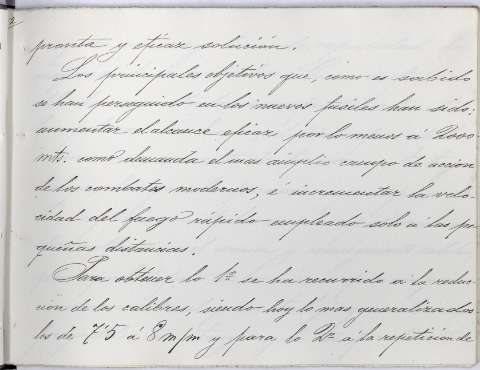 2
pronta y eficaz solución.
Los principales objetivos que, como es sabido
se han perseguido en los nuevos fusiles han sido:
aumentar el alcance eficaz por lo menos á 2000
mts. como demanda el mas amplio campo de accion
de los combates modernos, é incrementar la velo-
cidad del fuego rápido empleado solo á las pe-
queñas distancias.
Para obtener lo 1º se ha recurrido á la reduc-
ción de los calibres, siendo hoy lo mas generalizados
los de 7'5 á 8 m/m y para lo 2º á la repetición de